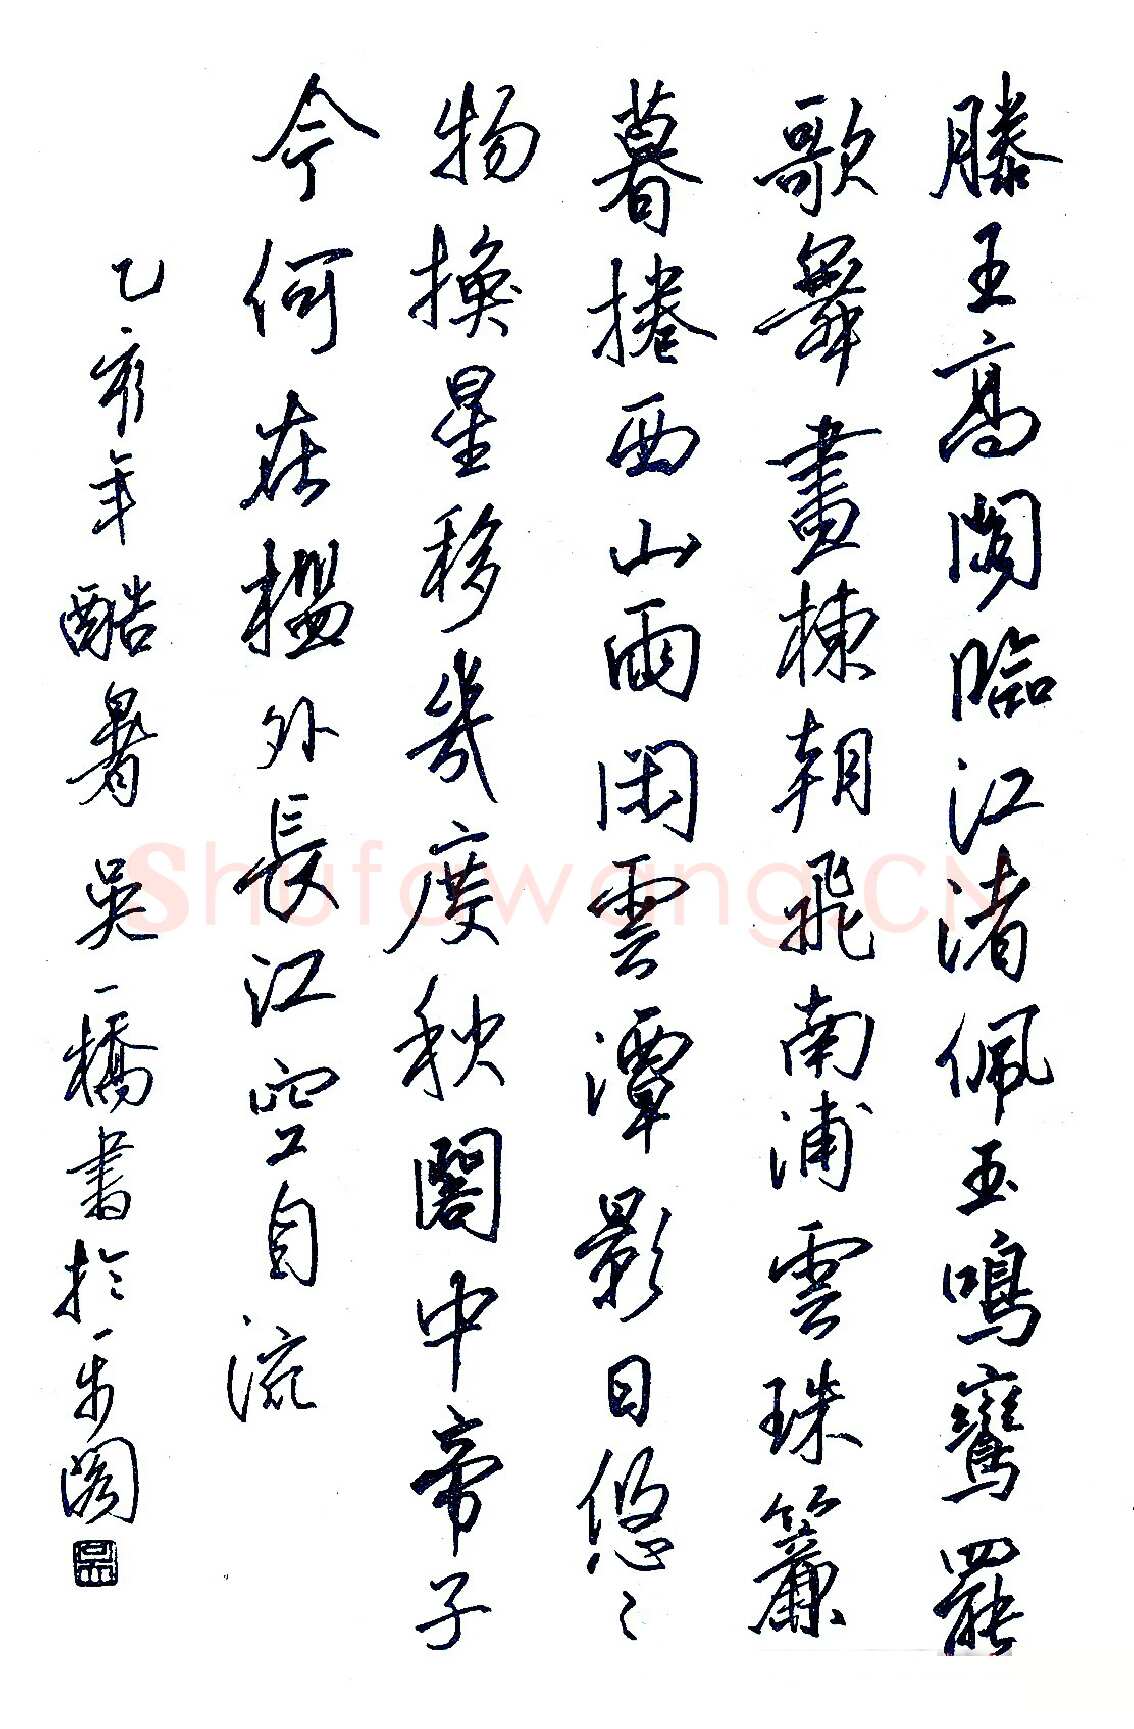 滕王高閣臨江渚佩玉鳴鸞罷
歌舞畫棟朝飛南浦雲珠簾
暮捲西山雨閑雲潭影日悠々
物換星移幾度秋閣中帝子
今何在檻外長江空自流
乙亥年酷暑吳一橋書於一閣
Shufawang.CN